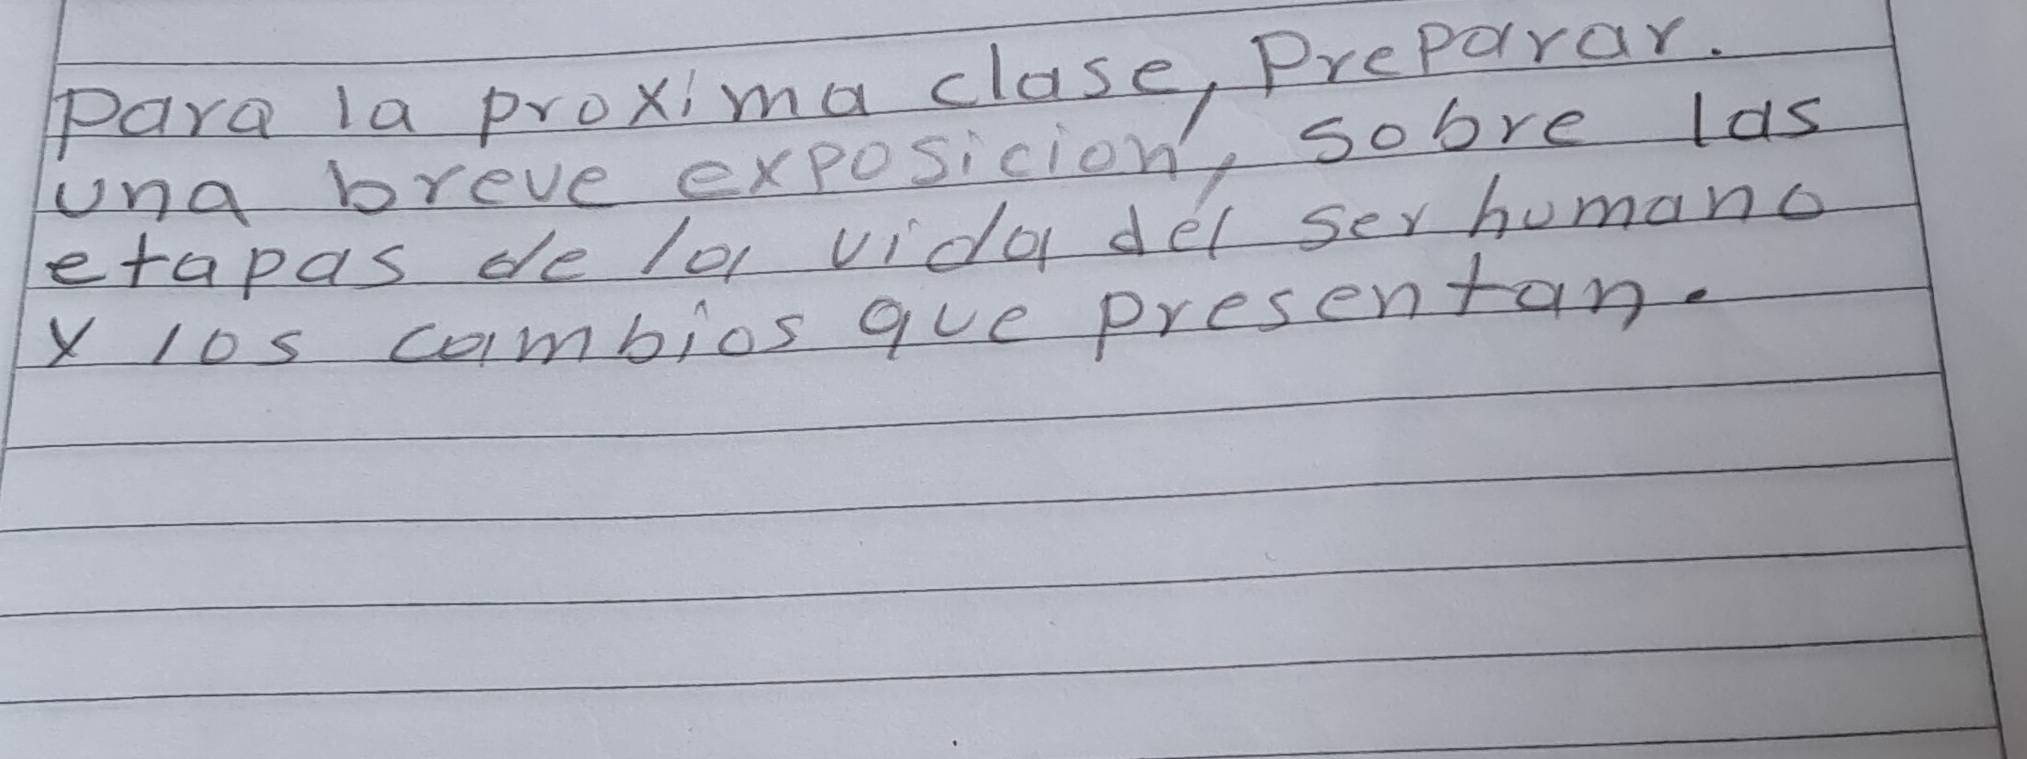 Para la proxima clase, Preparar.
una breve exposición, sobre las
etapas de la vida del ser humano
y los cambios que presentan.